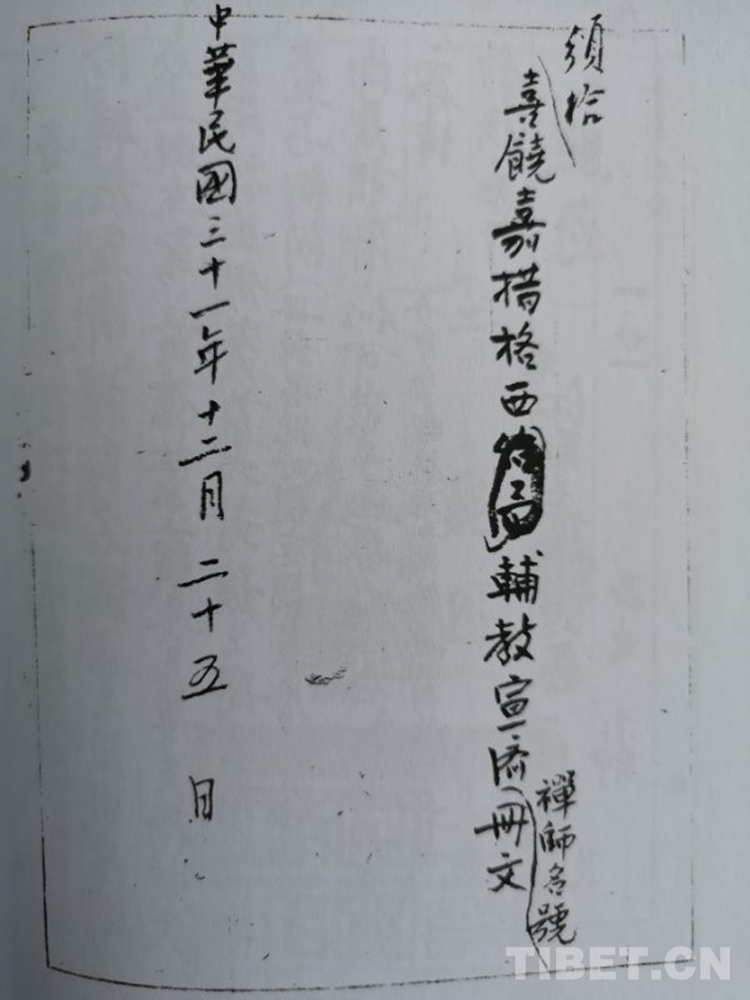 頒給
喜饒嘉措格西輔教宣濟冊文
禪師名號
中華民國三十一年十二月二十五日
TIBET.CN